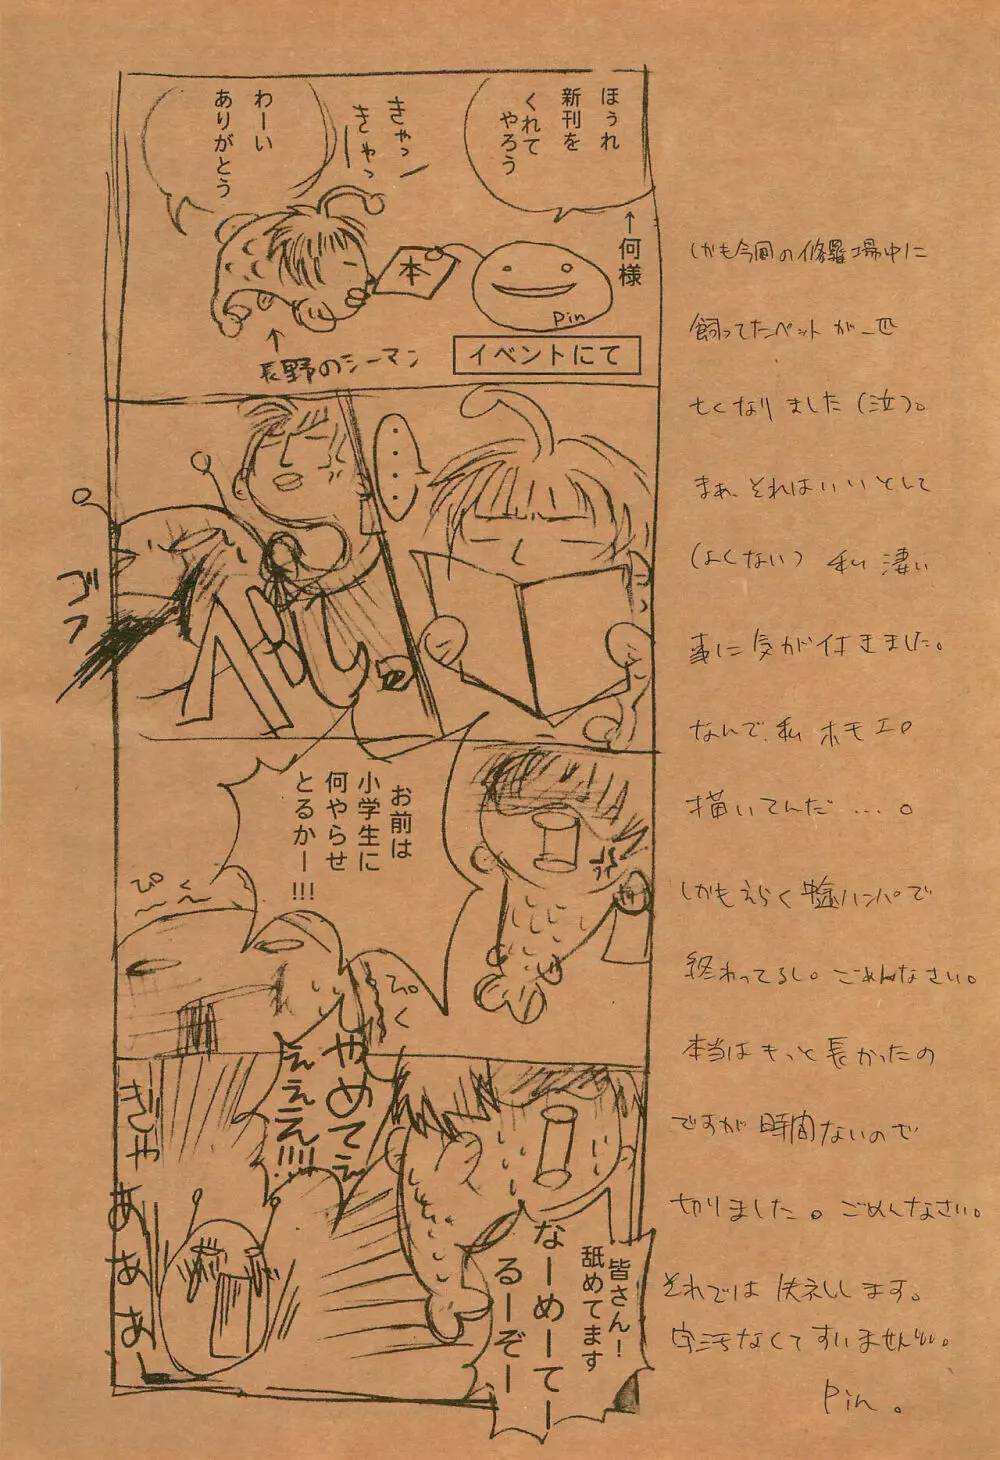 ほぅれ
新刊を
くれて
やろう
↑何様
きゃっ
きゃっ
わーい
ありがとう
本
pin
↑
長野のシーマン
イベントにて
・・・・
ゴフ
お前は
小学生に
何やらせ
とるかー!!!
ぴく
ぴく
やめてぇ
ぇぇえ!!!!
ぎゃあああー
皆さん!
舐めてます
なーめーてー
るーぞー
しかも今回の修羅場中に
飼ってたペットが一匹
亡くなりました(泣)。
まぁ、それはいいとして
(よくない) 私 凄い
事に気が付きました。
なんで、私 ホモエロ
描いてんだ……。
しかもえらく中途ハンパで
終わってるし。ごめんなさい。
本当はもっと長かったの
ですが時間ないので
切りました。ごめんなさい。
それでは失礼します。
字汚なくてすいません。
Pin。